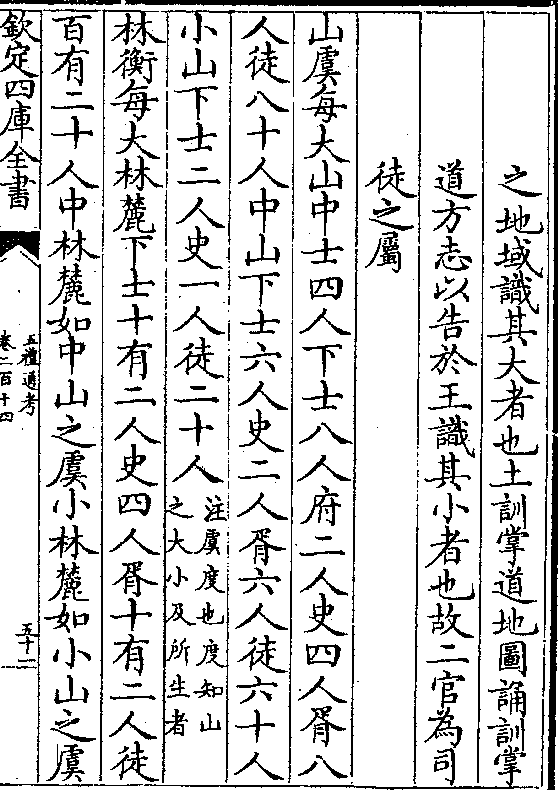 之地域識其大者也土訓掌道地圖誦訓掌
道方志以告於王識其小者也故二官為司
徒之屬
山虞每大山中士四人下士八人府二人史四人胥八
人徒八十人中山下士六人史二人胥六人徒六十人
小山下士二人史一人徒二十人
注虞度也度知山
之大小及所生者
林衡每大林麓下士十有二人史四人胥十有二人徒
百有二十人中林麓如中山之虞小林麓如小山之虞
欽定四庫全書
五禮通考
卷二百十四
五十二